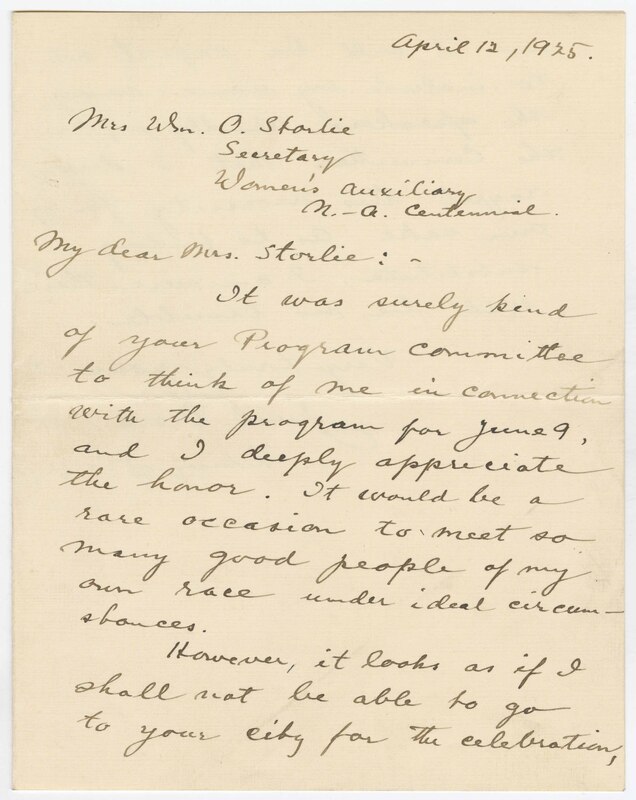 April 12, 1925.
Mrs Wm. O. Storlie
Secretary
Women's Auxiliary
N.-A. Centennial.
My dear Mrs. Storlie: -
It was surely kind
of your Program committee
to think of me in connection
with the program for June 9,
and I deeply appreciate
the honor. It would be a
rare occasion to meet so
many good people of my
own race under ideal circum-
stances.
However, it looks as if I
shall not be able to go
to your city for the celebration,